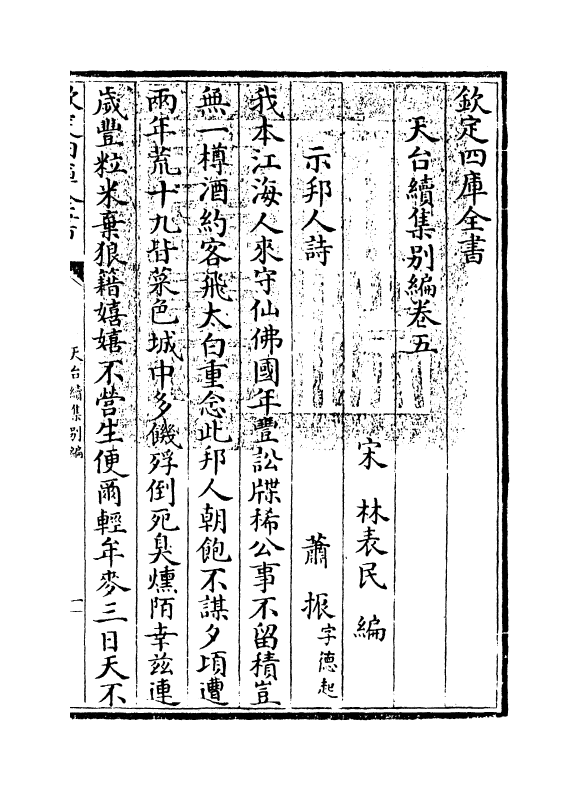 欽定四庫全書
天台續集別編卷五
宋 林表民 編
示邦人詩 蕭振字德起
我本江海人來守仙佛國年豐訟牒稀公事不留積豈
無一樽酒約客飛太白重念此邦人朝飽不謀夕項遭
兩年荒十九皆菜色城中多餓殍倒死臭燻陌幸茲連
歲豐粒米棄狼籍嬉嬉不營生便爾輕年麥三日天不
欽定四庫全書
天台續集別編
一